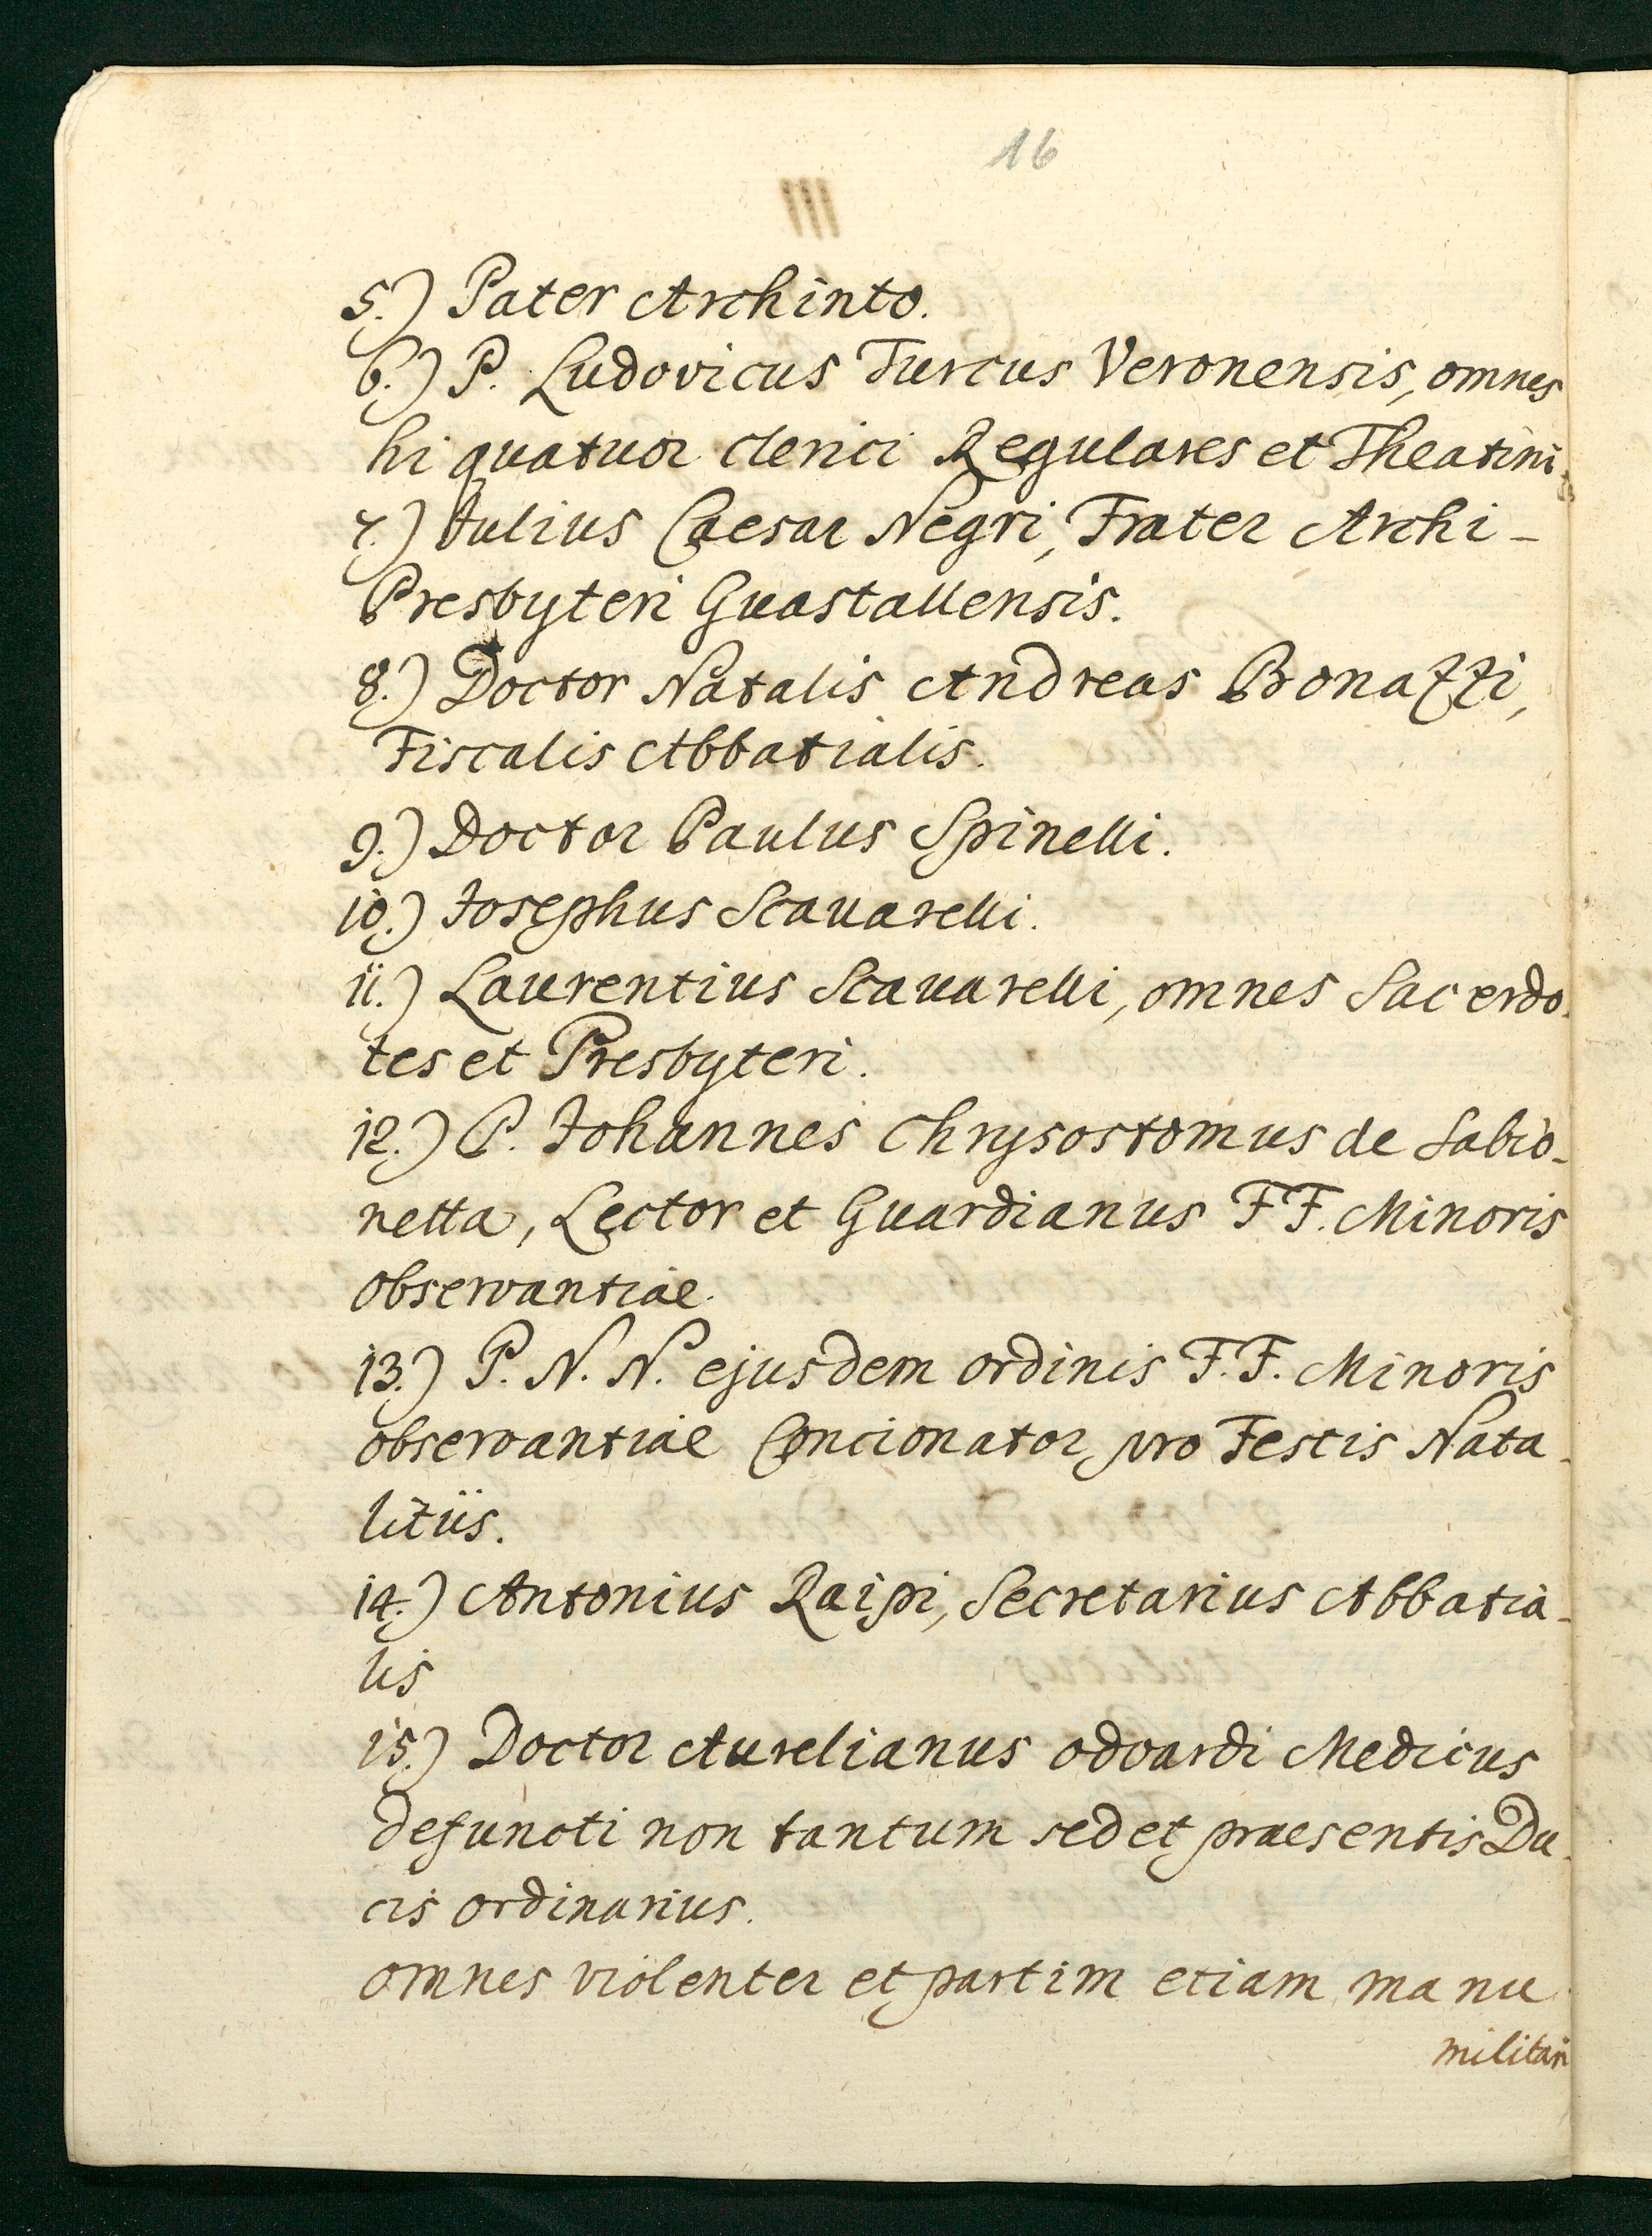 16
III
5.) Pater Archinto.
6.) P. Ludovicus Turcus Veronensis, omnes
hi quatuor clerici Regulares et Theatini
7.) Julius Caesar Negri, Frater Archi-
Presbyteri Guastallensis.
8.) Doctor Natalis Andreas Bonazzi,
Fiscalis Abbatialis.
9.) Doctor Paulus Spinelli.
10.) Josephus Scauarelli.
11.) Laurentius Scauarelli, omnes Sacerdo-
tes et Presbyteri.
12.) P. Johannes Chrysostomus de Sabio-
netta, Lector et Guardianus F F. Minoris
observantiae.
13.) P. N. N. ejusdem ordinis F. F. Minoris
observantiae Concionator pro Festis Nata-
litiis.
14.) Antonius Raipi, Secretarius Abbatia-
lis
15.) Doctor Aurelianus odoardi Medicus
defuncti non tantum sed et praesentis Du-
cis ordinarius.
omnes violenter et partim etiam manu
militari